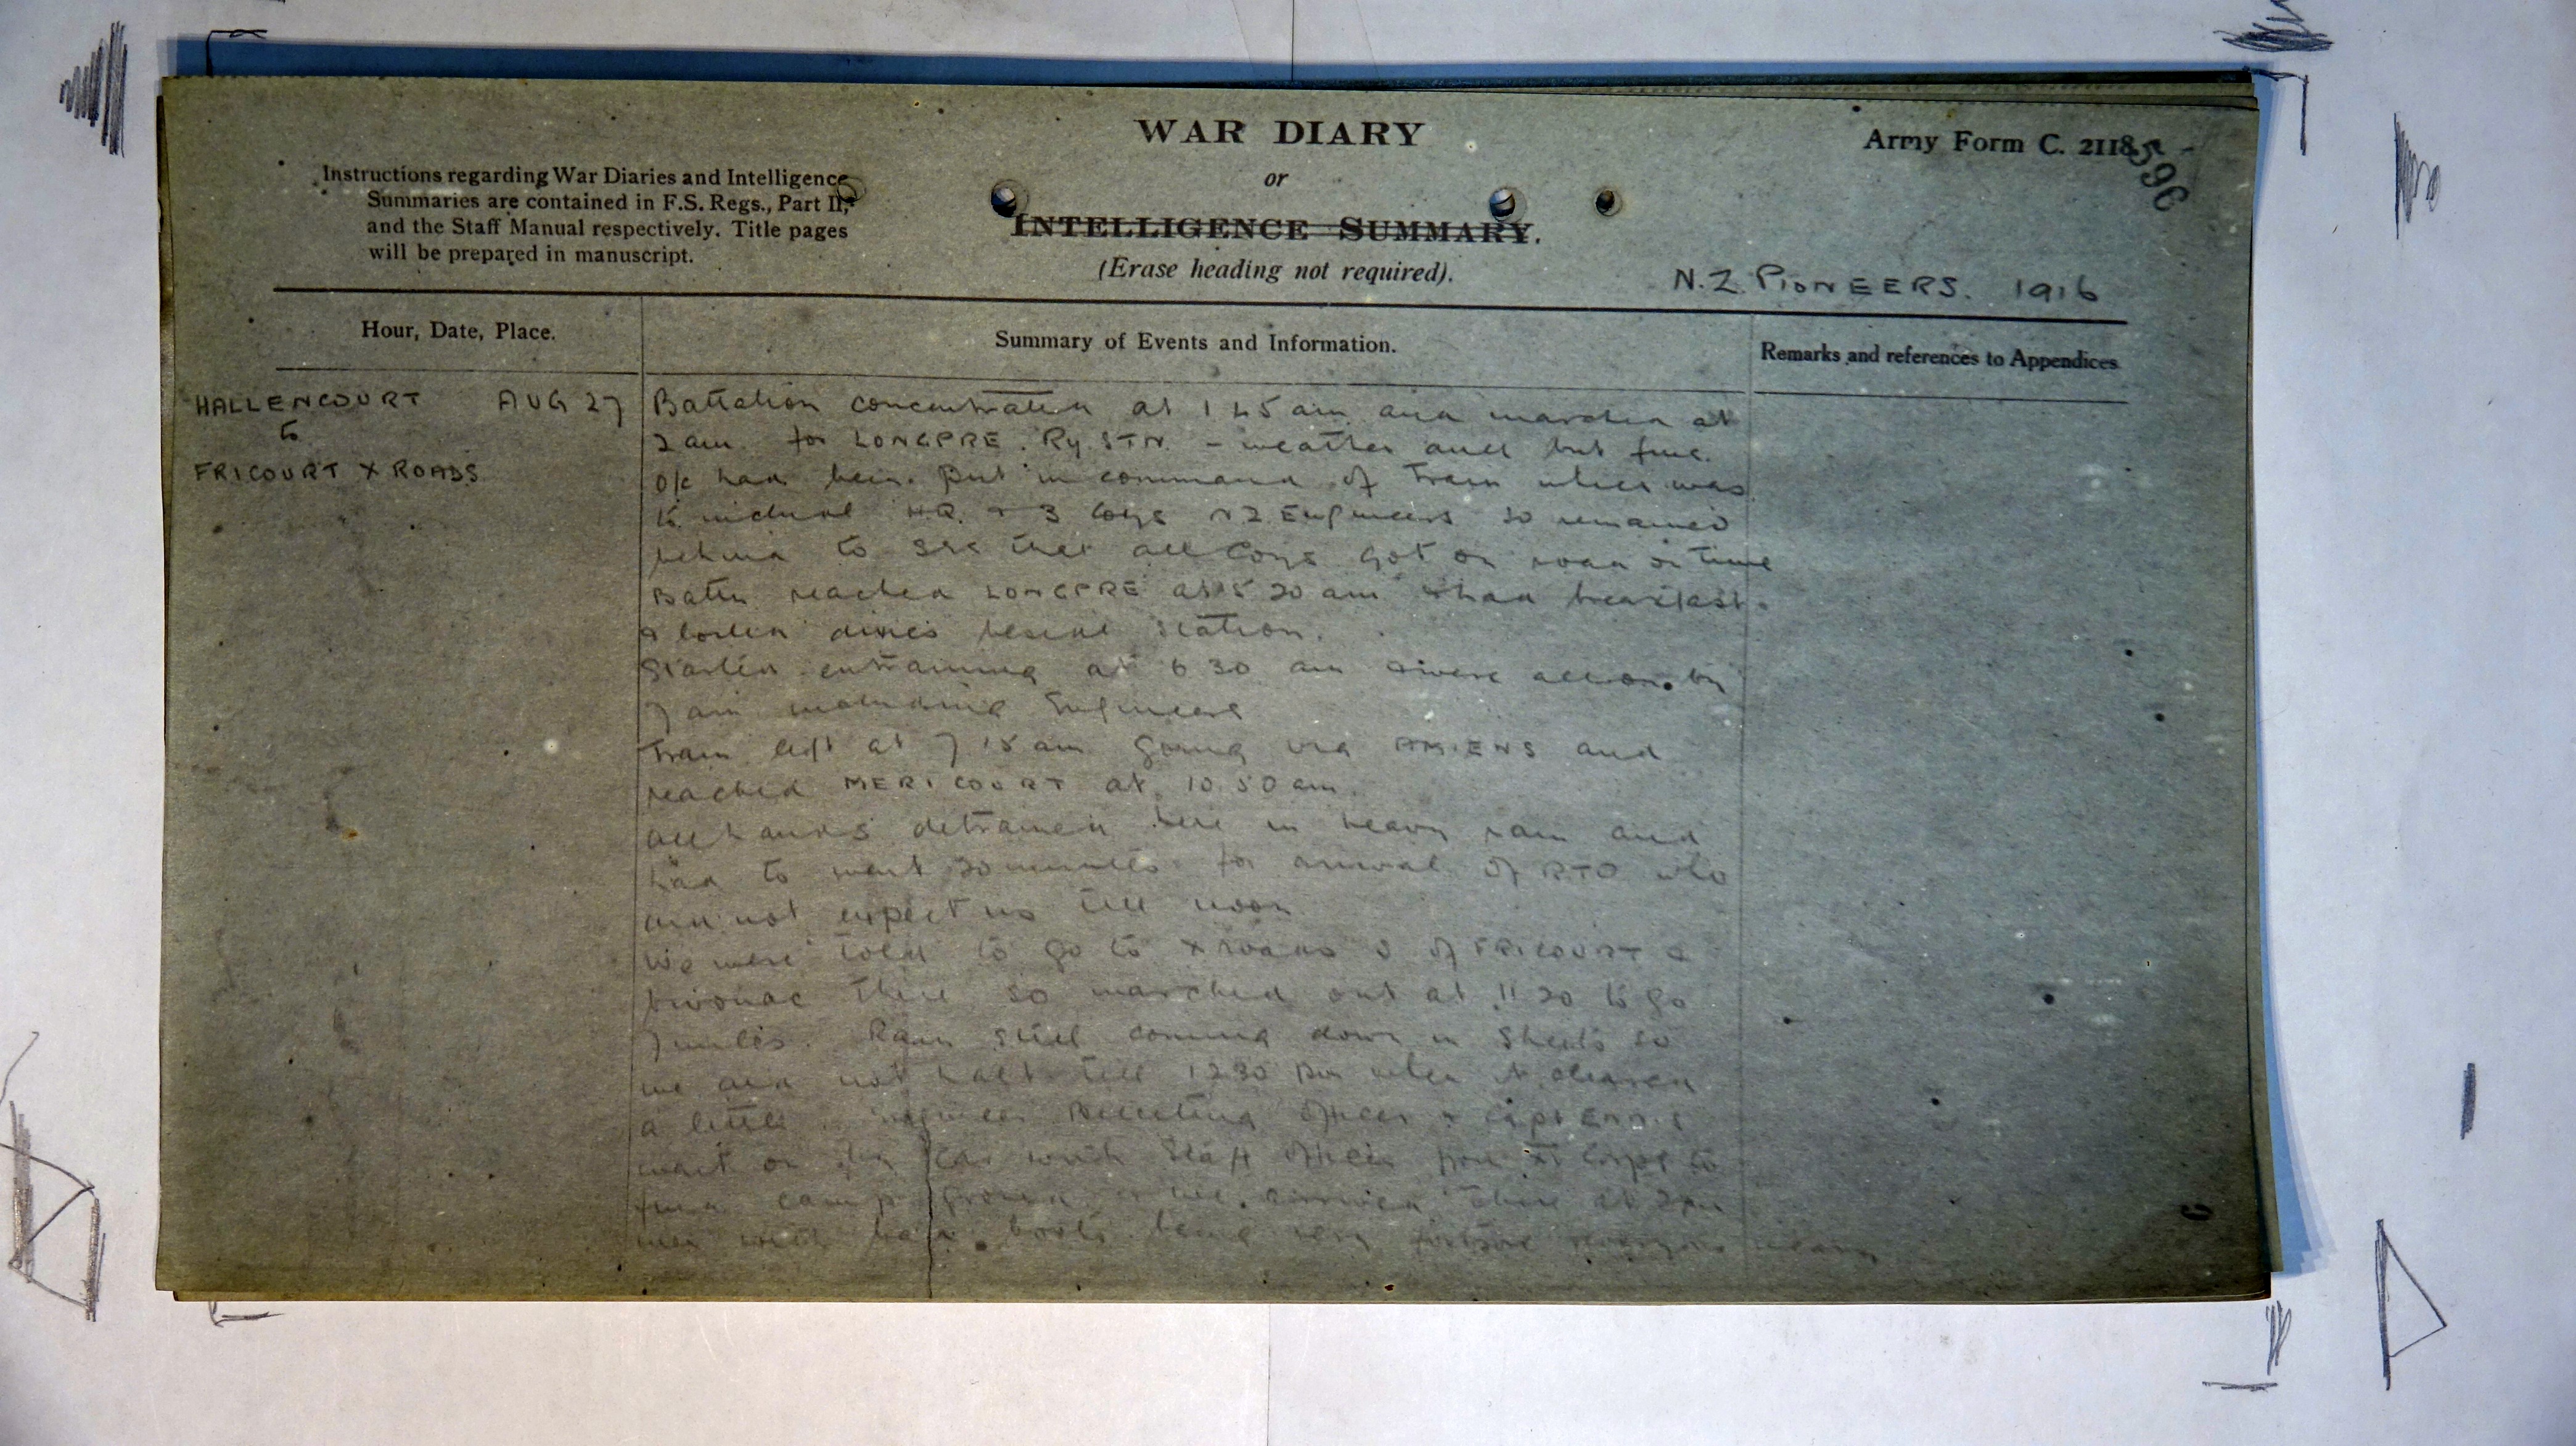 WAR DIARY
or
INTELLIGENCE SUMMARY.
(Erase heading not required).
Army Form C. 2118
596
Instructions regarding War Diaries and Intelligence
Summaries are contained in F.S. Regs., Part II,
and the Staff Manual respectively. Title pages
will be prepared in manuscript.
N.Z. PIONEERS. 1916
Hour, Date, Place.
Summary of Events and Information.
Remarks and references to Appendices
HALLENCOURT AUG 27
to
FRICOURT X ROADS
Battalion concentrated at 1 45 am and marched at
2 am for LONGPRE. Ry. STN. - weather dull but fine.
O/c had been put in command of train which was
to include HQ. & 3 Coys NZ Engineers so remained
behind to see that all Coys got on road on time
Battn reached LONGPRE at 5 20 am & had breakfast
& boiled dixies beside station.
Started entraining at 6 30 am & were all on by
7 am including Engineers
Train left at 7 15 am going via AMIENS and
reached MERICOURT at 10.50 am.
all hands detrained here in heavy rain and
had to wait 20 minutes for arrival of RTO who
did not expect us till noon
We were told to go to X roads S of FRICOURT &
bivouac there so marched out at 11 20 to go
7 miles. Rain still coming down in sheets so
we did not halt till 12 30 pm when it cleared
a little. Engineer Billeting officer & Capt ENNIS
went on by car with Staff officer from Corps to
find camp ground & we arrived there at 2 pm
men with bad boots being very